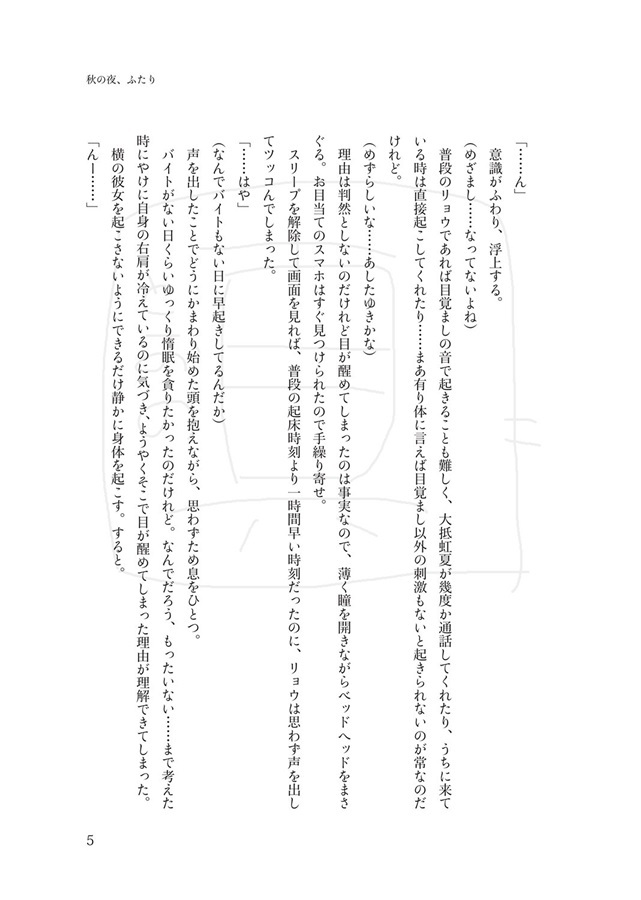 秋の夜、ふたり
「……ん」
意識がふわり、浮上する。
(めざまし……なってないよね)
普段のリョウであれば目覚ましの音で起きることも難しく、大抵虹夏が幾度か通話してくれたり、うちに来て
いる時は直接起こしてくれたり……まあ有り体に言えば目覚まし以外の刺激もないと起きられないのが常なのだ
けれど。
(めずらしいな……あしたゆきかな)
理由は判然としないのだけれど目が醒めてしまったのは事実なので、薄く瞳を開きながらベッドヘッドをまさ
ぐる。お目当てのスマホはすぐ見つけられたので手繰り寄せ。
スリープを解除して画面を見れば、普段の起床時刻より一時間早い時刻だったのに、リョウは思わず声を出し
てツッコんでしまった。
「……はや」
(なんでバイトもない日に早起きしてるんだか)
声を出したことでどうにかまわり始めた頭を抱えながら、思わずため息をひとつ。
バイトがない日くらいゆっくり惰眠を貪りたかったのだけれど。なんでだろう、もったいない……まで考えた
時にやけに自身の右肩が冷えているのに気づき、ようやくそこで目が醒めてしまった理由が理解できてしまった。
横の彼女を起こさないようにできるだけ静かに身体を起こす。すると。
「んー……」
5